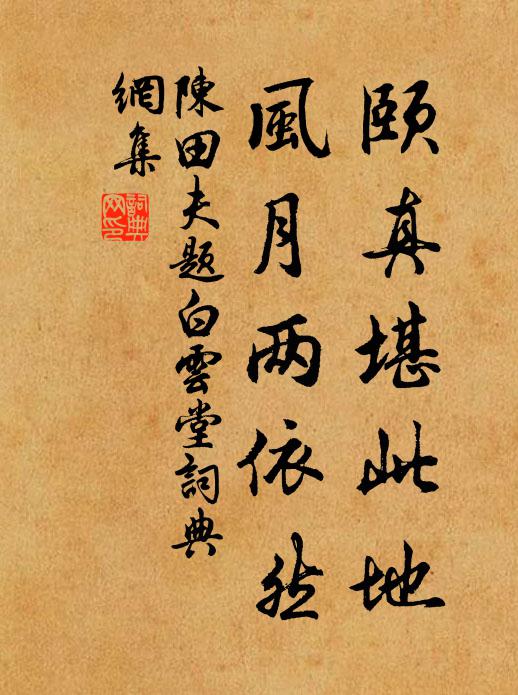 頤真堪此地
風月两依然
陳田夫题白雲堂詞典
網集
詞典
网印